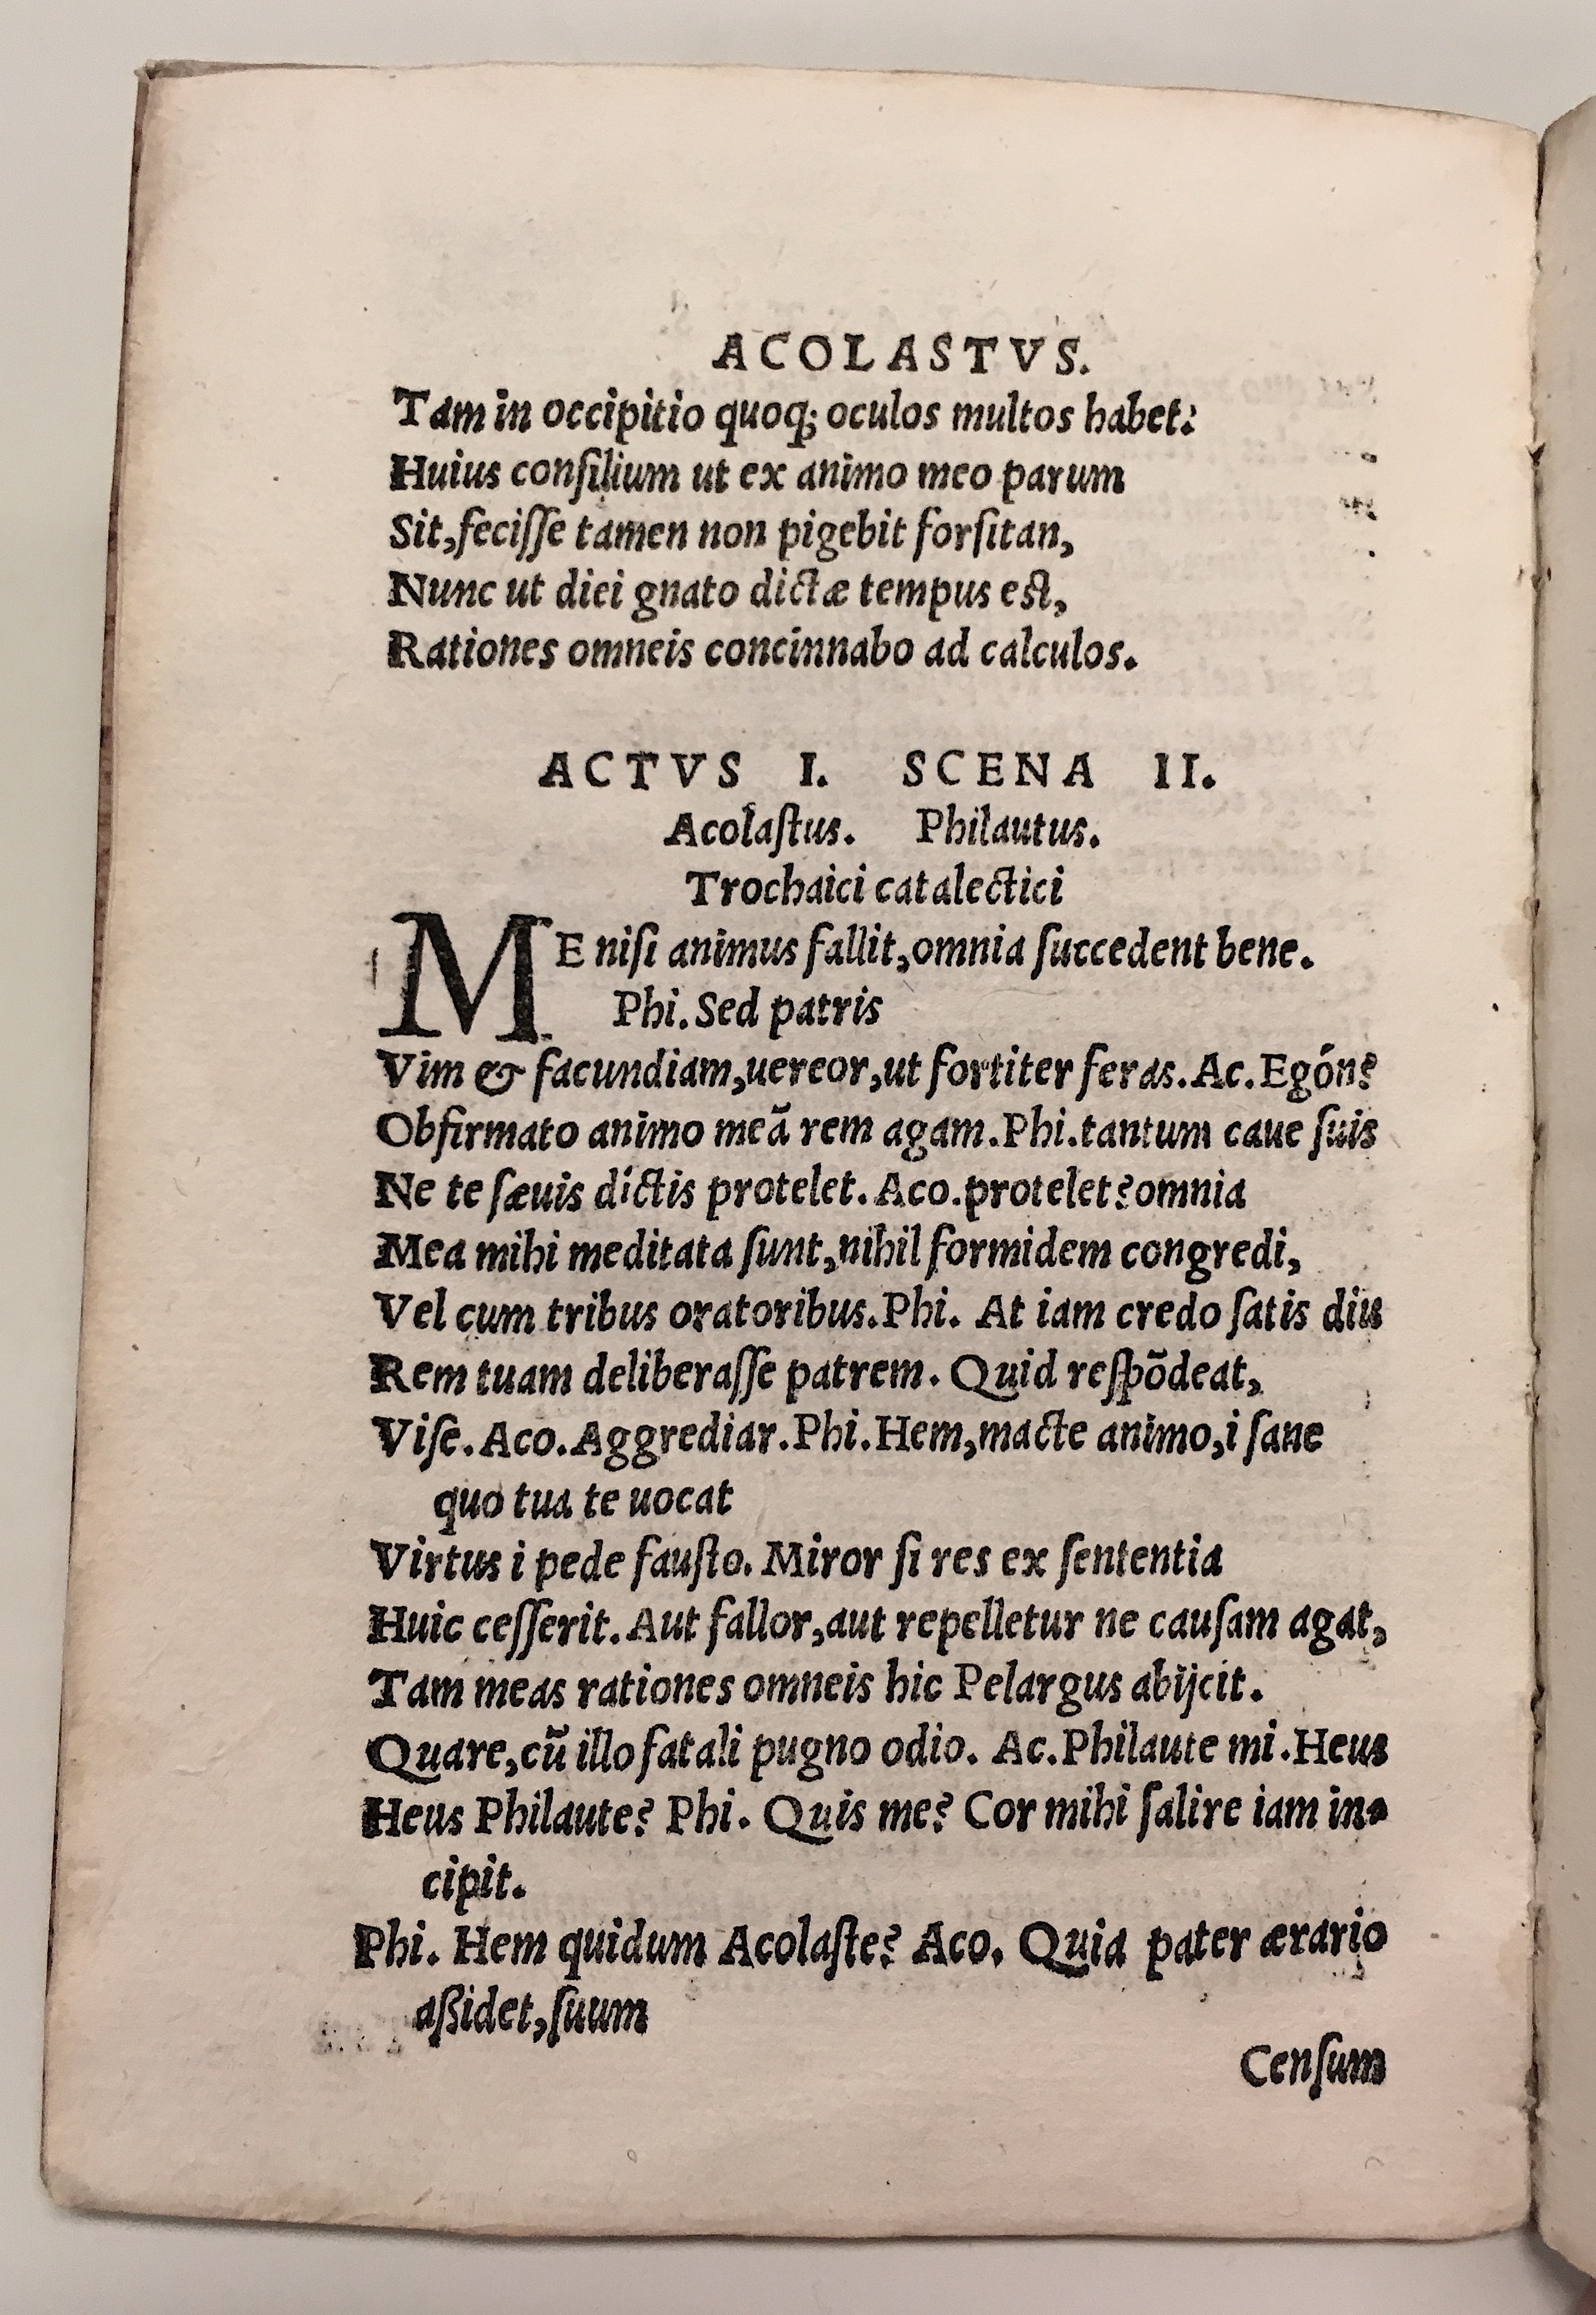 ACOLASTVS.
Tam in occipitio quoq; oculos multos habet:
Huius conſilium ut ex animo meo parum
Sit,feciſſe tamen non pigebit forſitan,
Nunc ut diei gnato dictæ tempus eſt,
Rationes omneis concinnabo ad calculos.
ACTVS I. SCENA II.
Acolaſtus. Philautus.
Trochaici catalectici
ME niſi animus fallit,omnia ſuccedent bene.
Phi. Sed patris
Vim & facundiam,uereor,ut fortiter feras.Ac.Egón?
Obfirmato animo meã rem agam.Phi.tantum caue ſuis
Ne te ſæuis díctis protelet. Aco.protelet?omnia
Mea mihi meditata ſunt,nihil formidem congredi,
Vel cum tribus oratoribus.Phi. At iam credo ſatis diu
Rem tuam deliberaſſe patrem. Quid reſpõdeat,
Viſe. Aco.Aggrediar.Phi.Hem,macte animo,i ſane
quo tua te uocat
Virtus i pede fauſto. Miror ſi res ex ſententia
Huic ceſſerit. Aut fallor,aut repelletur ne cauſam agat,
Tam meas rationes omneis hic Pelargus abijcit.
Quare,cũ illo fatali pugno odio. Ac.Philaute mi.Heus
Heus Philaute? Phi. Quis me? Cor mihi ſalire iam in-
cipit.
Phi. Hem quidum Acolaſte? Aco. Quia pater ærario
aßidet,ſuum
Cenſum